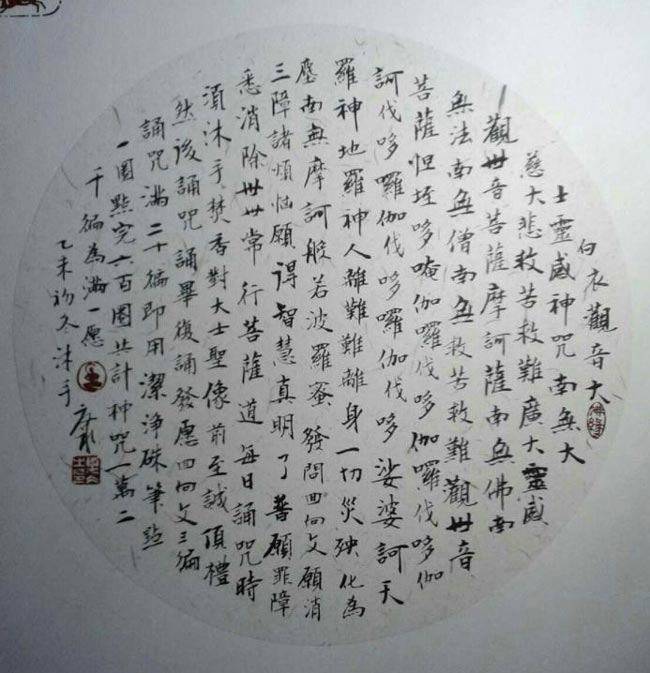 白衣觀音大
士靈感神咒 南無大
慈大悲救苦救難廣大靈感
觀世音菩薩摩訶薩南無佛南
無法南無僧南無救苦救難觀世音
菩薩怛垤哆唵伽囉伐哆伽囉伐哆伽
訶伐哆囉伽伐哆囉伽伐哆娑婆訶天
羅神地羅神人離難難離身一切災殃化為
塵南無摩訶般若波羅蜜 發問回向文願消
三障諸煩惱願得智慧真明了普願罪障
悉消除世世常行菩薩道 每日誦咒時
須沐手焚香對大士聖像前至誠頂禮
然後誦咒誦畢復誦發愿回向文三徧
誦咒滿二十徧即用潔淨硃筆點
一圈點完六百圈共計神咒一萬二
千徧為滿一愿
乙未初冬沐手